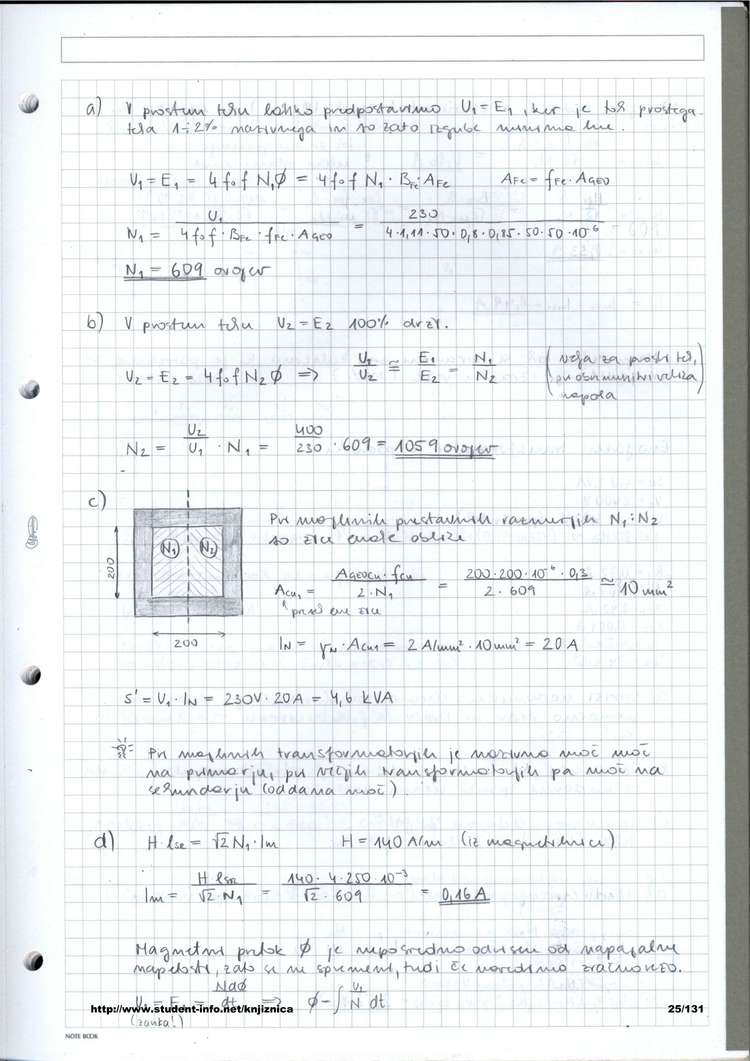 a) V prostem teku lahko predpostavimo U₁ = E₁, ker je tok prostega
teka 1÷2% nazivnega in so zato izgube minimalne.
U₁ = E₁ = 4 f₀ f N₁ Ø = 4 f₀ f N₁ · B_Fe · A_Fe A_Fe = f_Fe · A_GEO
N₁ = U₁ / (4 f₀ f · B_Fe · f_Fe · A_GEO) = 230 / (4·1,11·50·0,8·0,85·50·50·10⁻⁶)
N₁ = 609 ovojev
b) V prostem teku U₂ = E₂ 100% drži.
U₂ = E₂ = 4 f₀ f N₂ Ø ⇒ U₁/U₂ ≅ E₁/E₂ = N₁/N₂ (velja za prosti tek,
pri obremenitvi
napaka)
N₂ = U₂/U₁ · N₁ = 400/230 · 609 = 1059 ovojev
c) Pri majhnih prestavnih razmerjih N₁:N₂
so žice enake
N₁ N₂
200
200
A_Cu₁ = (A_GEOCu · f_Cu) / (2·N₁) = (200·200·10⁻⁶·0,3) / (2·609) ≅ 10 mm²
žice
I_N = γ_N · A_Cu1 = 2 A/mm² · 10 mm² = 20 A
S' = U₁ · I_N = 230V · 20A = 4,6 kVA
Pri majhnih transformatorjih je nazivna moč moč
na primarju, pri večjih transformatorjih pa moč na
sekundarju (oddana moč).
d) H · l_sr = √2 N₁ · I_m H = 140 A/m (iz magnetilnice)
I_m = H l_sr / (√2 · N₁) = (140 · 4·250·10⁻³) / (√2 · 609) = 0,16 A
Magnetni pretok Ø je neposredno odvisen od napajalne
napetosti, zato se ne spremeni, tudi če naredimo zračno režo.
U₁ = E₁ = NdØ/dt ⇒ Ø = ∫ U₁/N dt
(zanka!)
http://www.student-info.net/knjiznica 25/131
NOTE BOOK